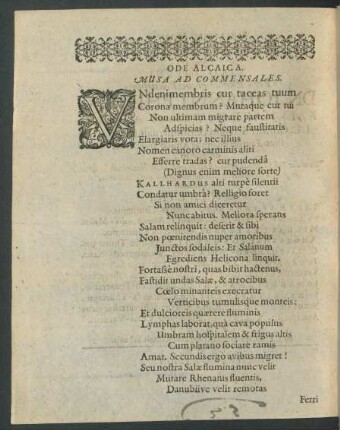 ODE ALCAICA.
MUSA AD COMMENSALES.
VNdenimembris cur taceas tuum
Corona membrum? Mutaque cur tui
Non ultimam migrare partem
Adspicias? Neque faustitatis
Elargiaris vota: nec illius
Nomen canoro carminis aliti
Efferre tradas? cur pudendâ
(Dignus enim meliore sorte)
KALLHARDUS alti turpè silentii
Condatur umbrà? Relligio foret
Si non amici diceretur
Nunc abitus. Meliora sperans
Salam relinquit: deserit & sibi
Non pœnitendis nuper amoribus
Junctos sodaleis: Et Salanum
Egrediens Helicona linquit.
Fortasse nostri, quas bibit hactenus,
Fastidit undas Salæ, & atrocibus
Cœlo minanteis execratur
Verticibus tumulisque monteis:
Et dulcioreis quærere fluminis
Lymphas laborat, quà cava populus
Umbram hospitalem & frigus altis
Cum platano sociare ramis
Amat. Secundis ergo avibus migret!
Seu nostra Salæ flumina nunc velit
Mutare Rhenanis fluentis,
Danubiive velit remotas
Ferri